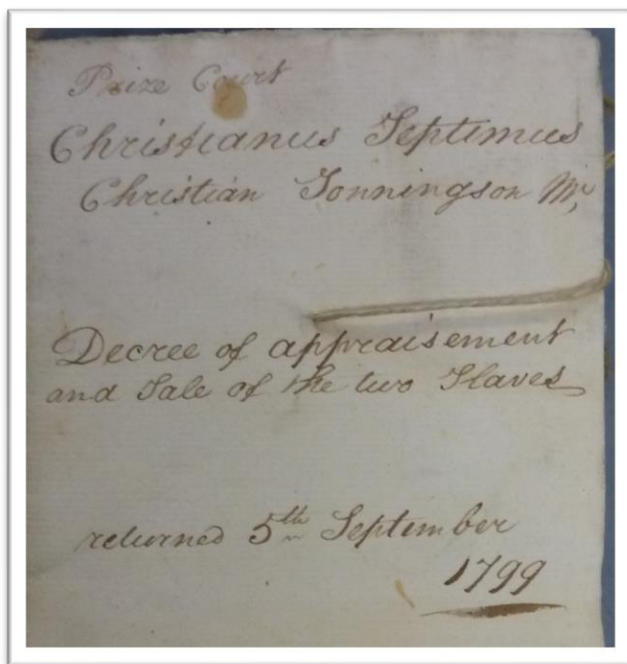 Prize Court
Christianus Septimus
Christian Tonningson Mr,
Decree of appraisement
and Sale of the two Slaves
returned 5th September
1799